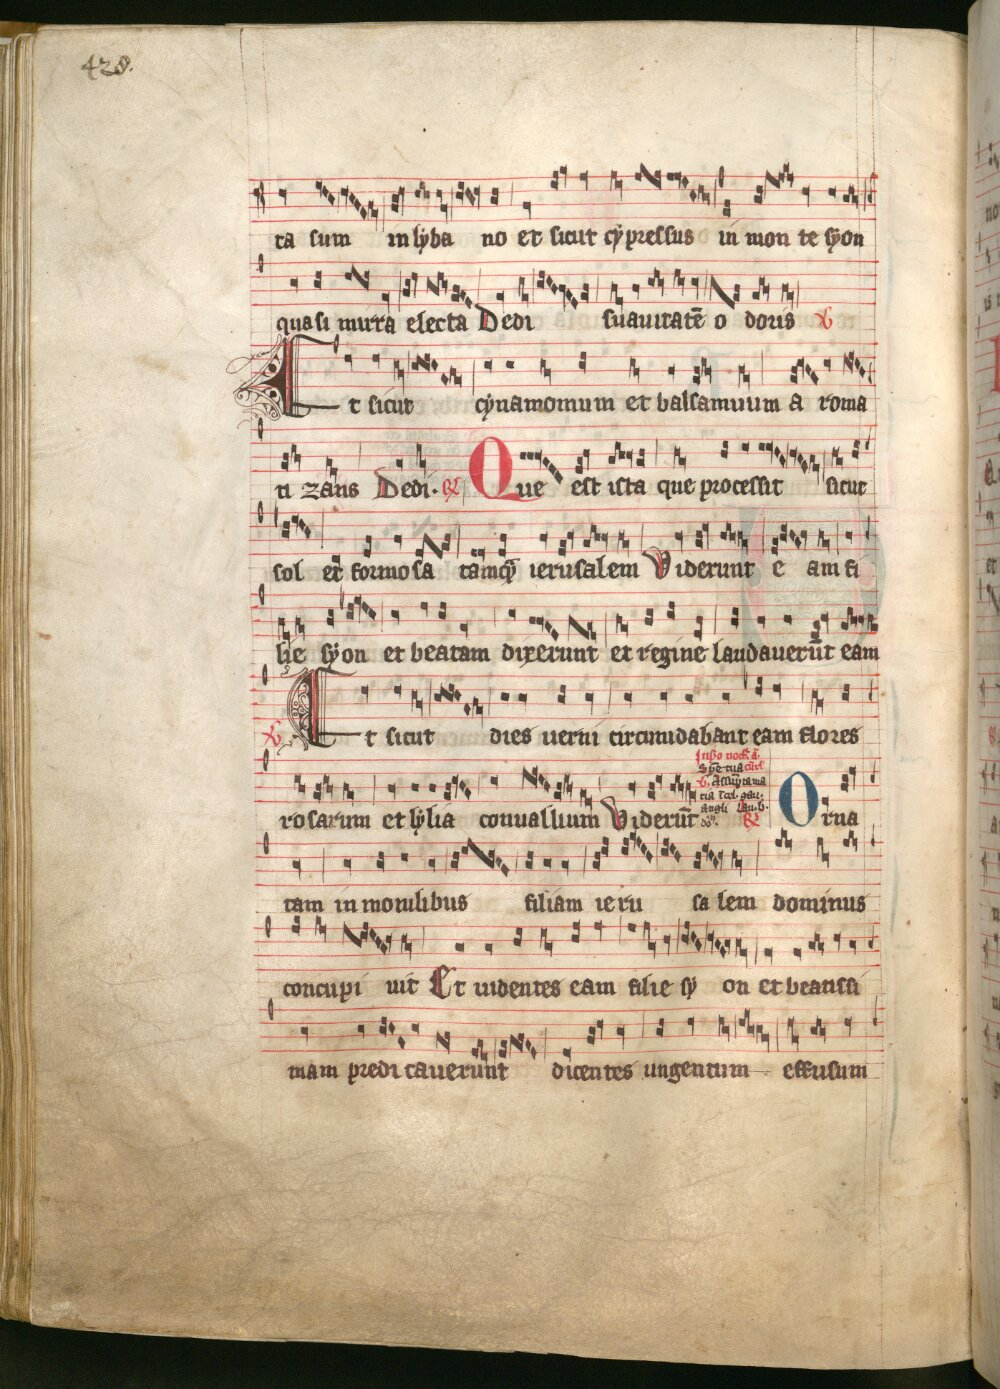 428.
ta sum in lyba no et sicut cypressus in mon te syon
quasi mirra electa Dedi suauitatē o doris
Et sicut cynamomum et balsamum a roma
ti zans Dedi. Que est ista que processit sicut
sol et formosa tamq̄ ierusalem Viderunt e am fi
lie syon et beatam dixerunt et regine laudauerūt eam
Et sicut dies uerni circumdabant eam flores
rosarum et lylia conuallium Viderūt Orna
tam in monilibus filiam ieru sa lem dominus
concupi uit Et uidentes eam filie sy on et beatissi
mam predicauerunt dicentes ungentum effusum